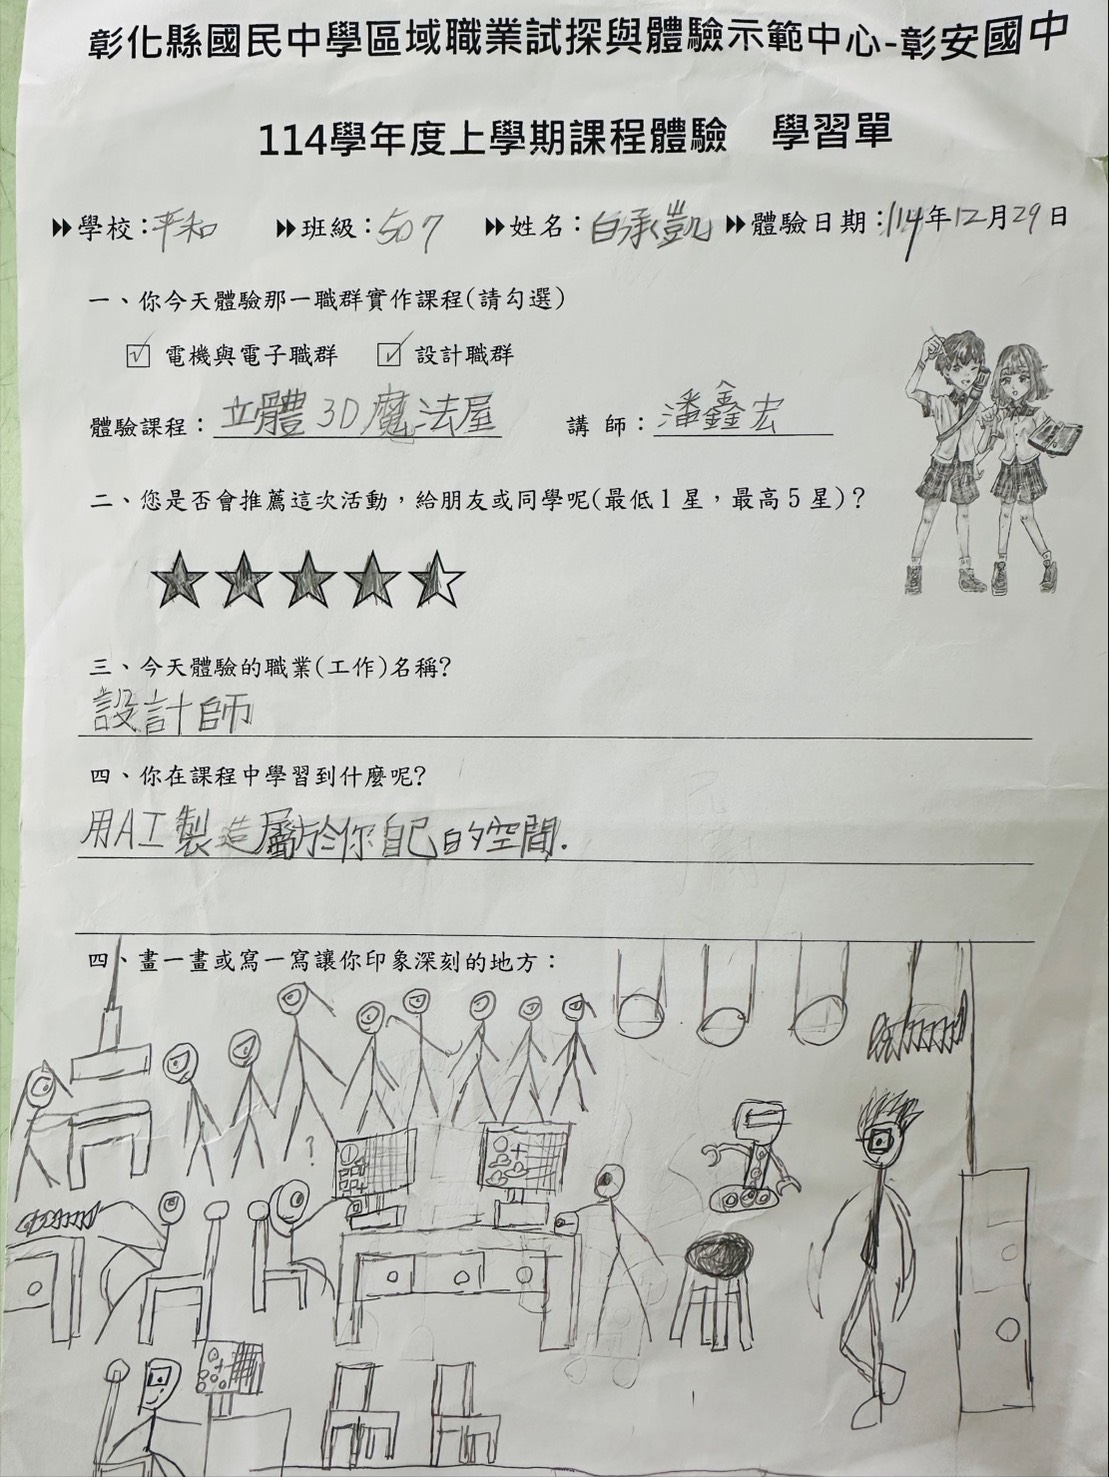 彰化縣國民中學區域職業試探與體驗示範中心-彰安國中
114學年度上學期課程體驗 學習單
學校：平和 班級：507 姓名：白承凱 體驗日期：114年12月29日
一、你今天體驗那一職群實作課程(請勾選)
☑ 電機與電子職群 ☑ 設計職群
體驗課程：立體3D魔法屋 講 師：潘鑫宏
二、您是否會推薦這次活動，給朋友或同學呢(最低1星，最高5星)？
三、今天體驗的職業(工作)名稱?
設計師
四、你在課程中學習到什麼呢?
用AI製造屬於你自己的空間.
四、畫一畫或寫一寫讓你印象深刻的地方：
?